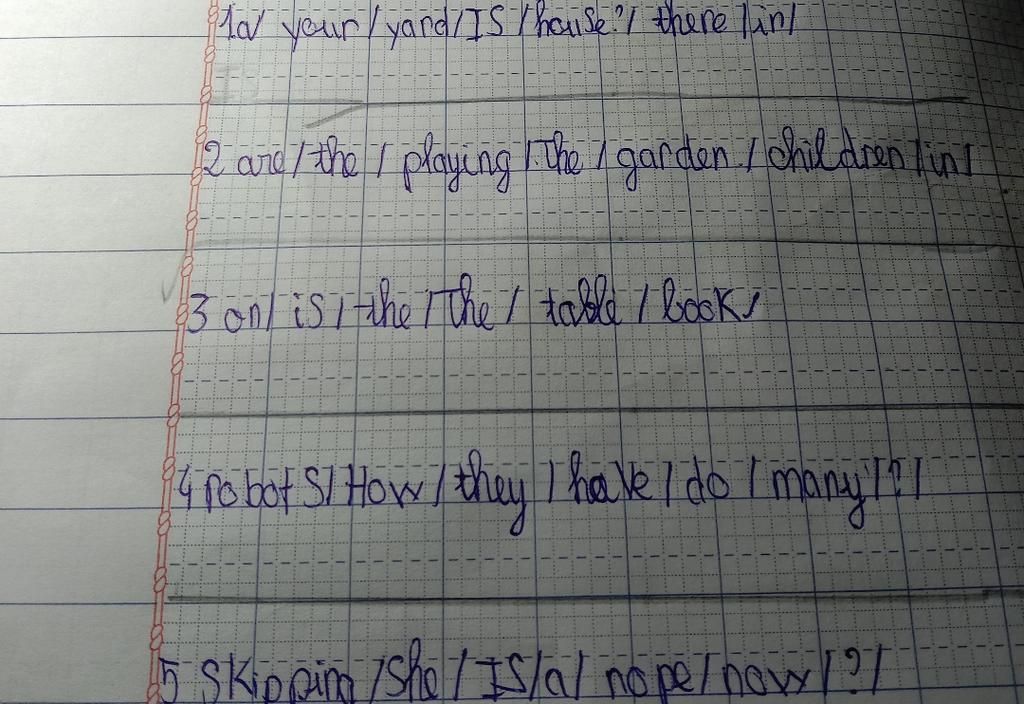 1a/ your/ yard/ IS/ house?/ there/ in/
2 are/ the/ playing/ The/ garden/ children/ in/
3 on/ is/ the/ The/ table/ book/
4 robots/ How/ they/ have/ do/ many/ ?/
5 Skipping/ She/ IS/ a/ nope/ now/ ?/